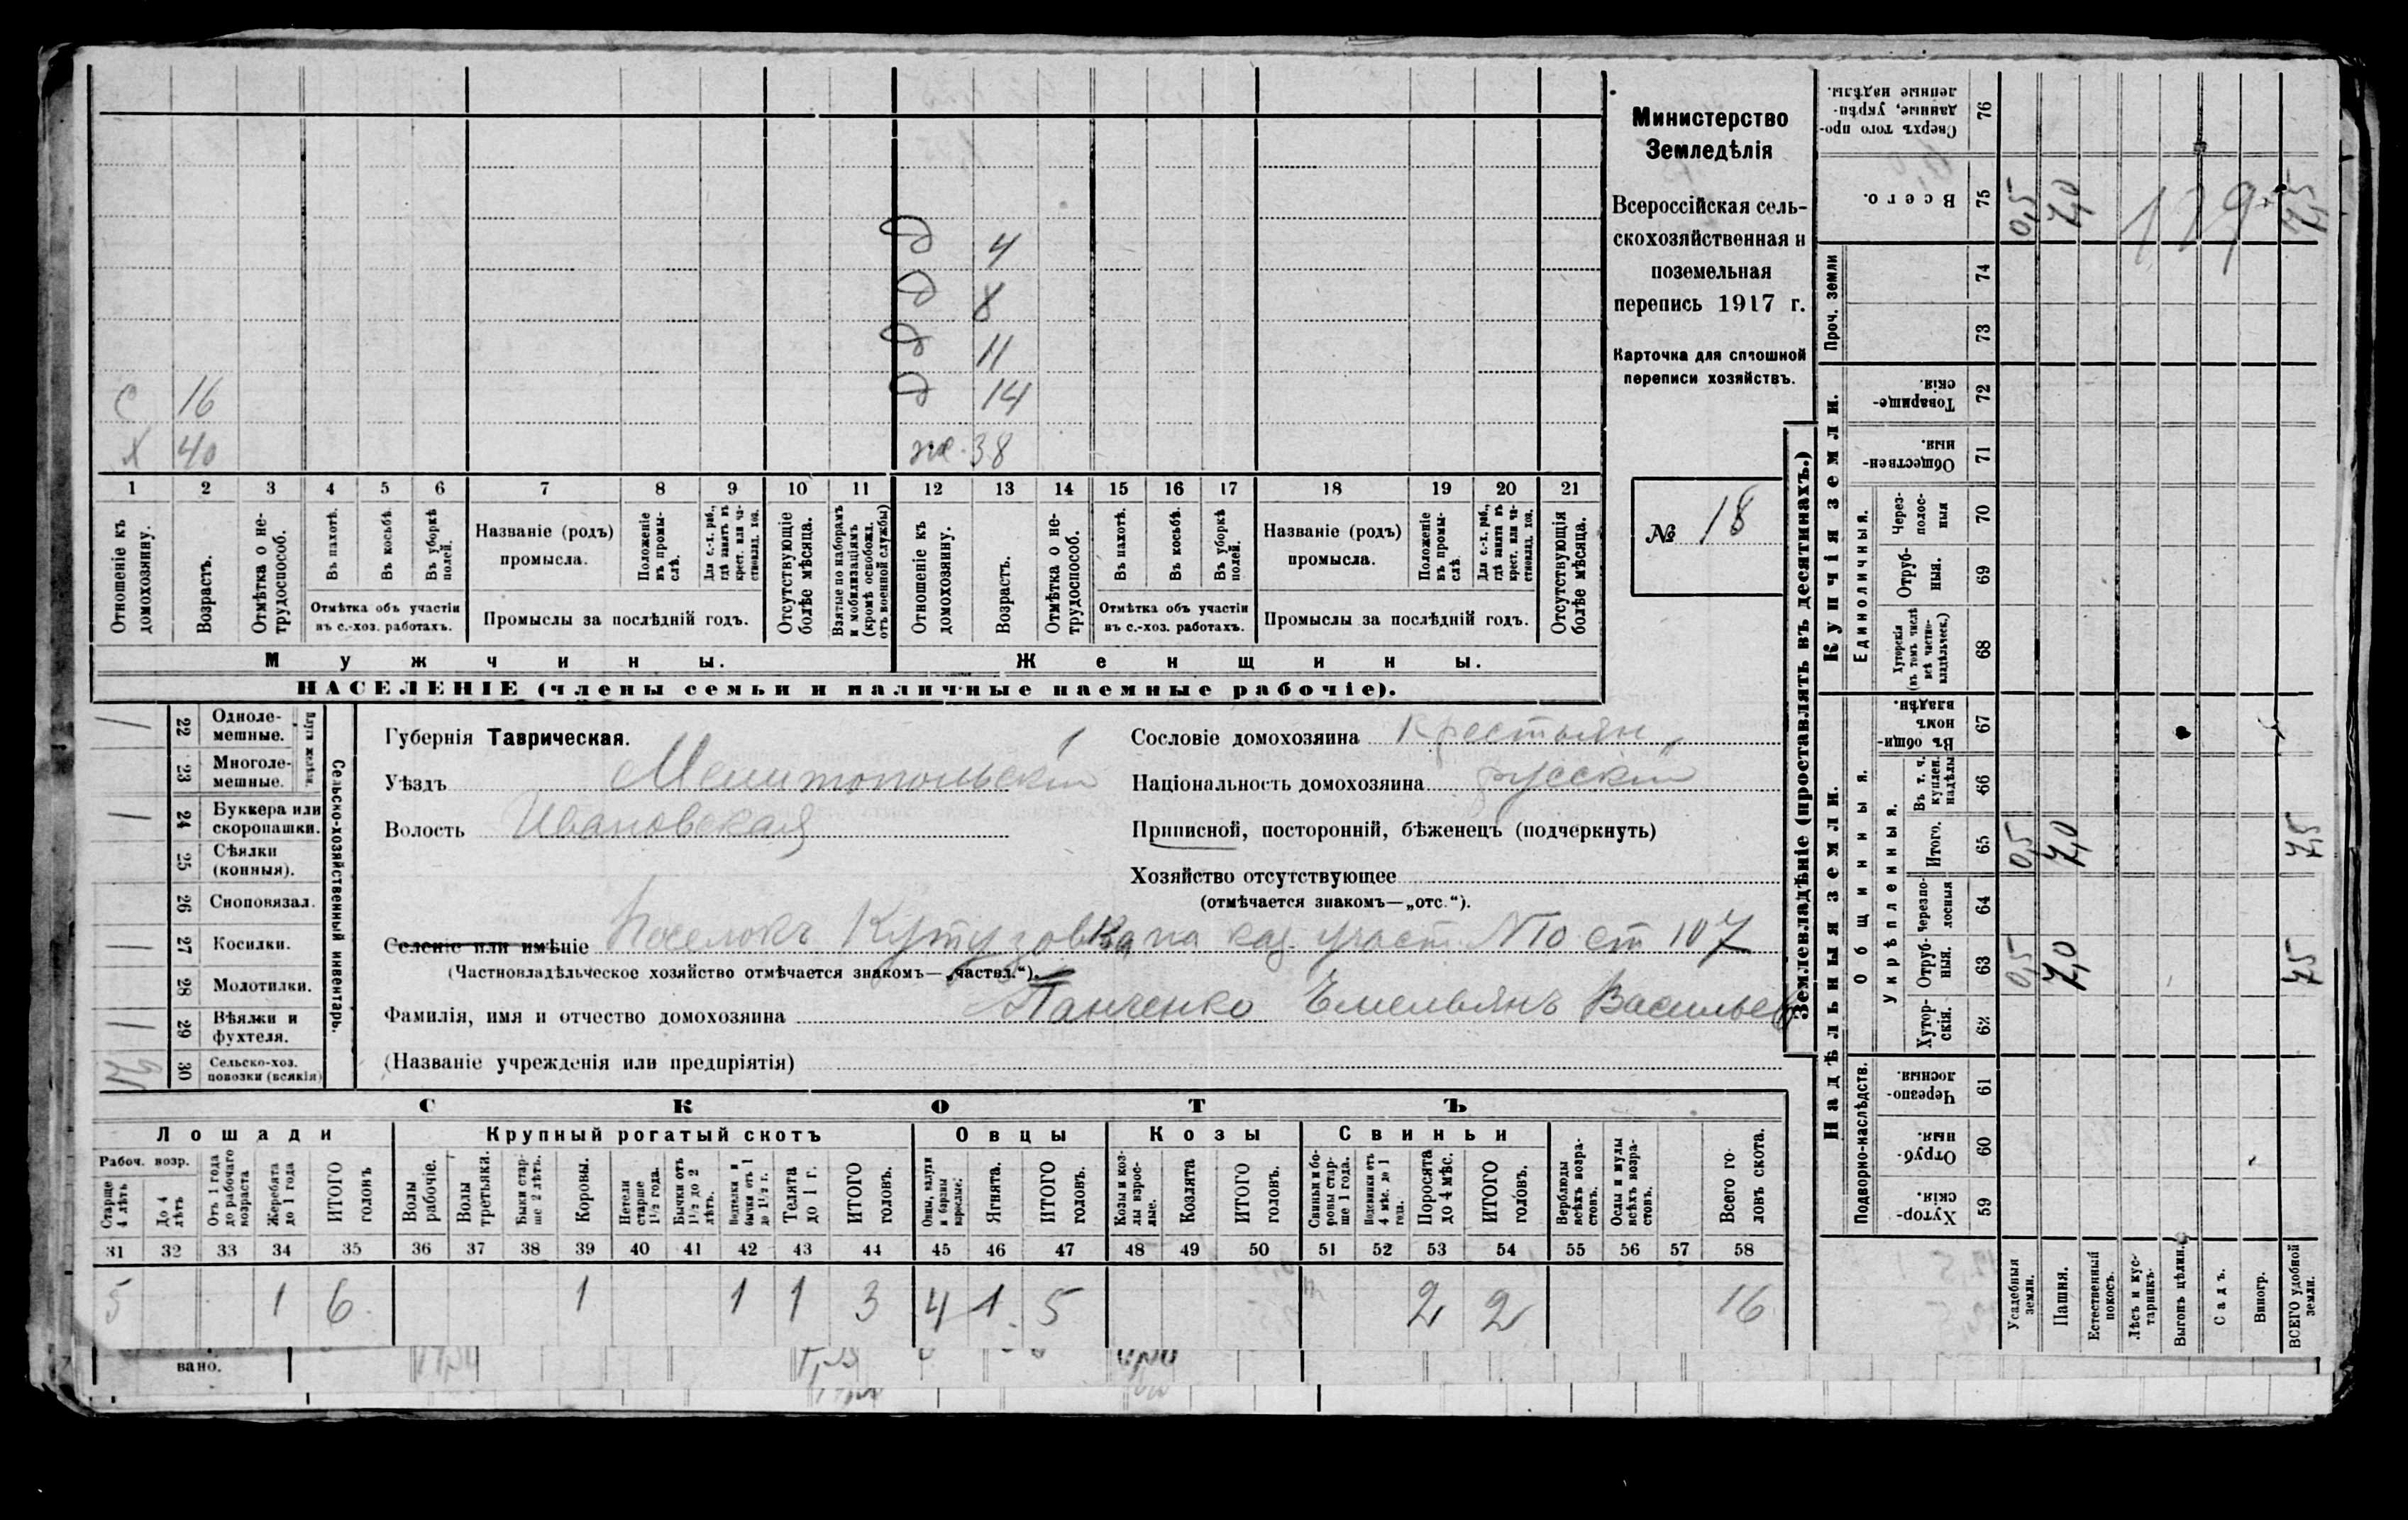 Министерство
Земледѣлія
Всероссійская сель-
скохозяйственная и
поземельная
перепись 1917 г.
Карточка для сплошной
переписи хозяйствъ.
№ 18
Д 4
Д 8
Д 11
С 16 Д 14
Х 40 же. 38
1 2 3 4 5 6 7 8 9 10 11 12 13 14 15 16 17 18 19 20 21
Отношеніе къ домохозяину.
Возрастъ.
Отмѣтка о не-трудоспособ.
Въ пахотѣ.
Въ косьбѣ.
Въ уборкѣ полей.
Отмѣтка объ участіи
въ с.-хоз. работахъ.
Названіе (родъ)
промысла.
Положеніе въ промы-слѣ.
Для с.-х. раб., гдѣ занятъ въ крест. или ча-стновлад. хоз.
Промыслы за послѣдній годъ.
Отсутствующіе болѣе мѣсяца.
Взятые по наборамъ и мобилизаціямъ (кромѣ освобожд. отъ военной службы)
Отношеніе къ домохозяину.
Возрастъ.
Отмѣтка о не-трудоспособ.
Въ пахотѣ.
Въ косьбѣ.
Въ уборкѣ полей.
Отмѣтка объ участіи
въ с.-хоз. работахъ.
Названіе (родъ)
промысла.
Положеніе въ промы-слѣ
Для с.-х. раб., гдѣ занята въ крест. или ча-стновлад. хоз.
Промыслы за послѣдній годъ.
Отсутствующія болѣе мѣсяца.
Мужчины. Женщины.
НАСЕЛЕНІЕ (члены семьи и наличные наемные рабочіе).
Сельско-хозяйственный инвентарь.
1 22 Одноле-мешные.
23 Многоле-мешные.
1 24 Буккера или скоропашки.
25 Сѣялки (конныя).
26 Сноповязал.
1 27 Косилки.
28 Молотилки.
1 29 Вѣялки и фухтеля.
30 Сельско-хоз. повозки (всякія)
Губернія Таврическая. 1
Уѣздъ Мелитопольскій
Волость Ивановская
Сословіе домохозяина Крестьян
Національность домохозяина русскій
Приписной, посторонній, бѣженецъ (подчеркнуть)
Хозяйство отсутствующее
(отмѣчается знакомъ—„отс.“).
Селеніе или имѣніе Поселокъ Кутузовка на каз. участ. №10 ст 107
(Частновладѣльческое хозяйство отмѣчается знакомъ—„частвл.“).
Фамилія, имя и отчество домохозяина Панченко Емельянъ Васильев
(Названіе учрежденія или предпріятія)
СКОТЪ
Лошади Крупный рогатый скотъ Овцы Козы Свиньи
Рабоч. возр.
Старше 4 лѣтъ
До 4 лѣтъ
Отъ 1 года до рабочаго возраста
Жеребята до 1 года
ИТОГО головъ
Волы рабочіе.
Волы третьяки.
Быки стар-ше 2 лѣтъ.
Коровы.
Нетели старше 1½ года.
Бычки отъ 1½ до 2 лѣтъ.
Подтелки и бычки отъ 1 до 1½ г.
Телята до 1 г.
ИТОГО головъ.
Овцы, валухи и бараны взрослые.
Ягнята.
ИТОГО головъ.
Козы и коз-лы взрос-лые.
Козлята
ИТОГО головъ.
Свиньи и бо-ровы стар-ше 1 года.
Подсвинки отъ 4 мѣс. до 1 года.
Поросята до 4 мѣс.
ИТОГО головъ.
Верблюды всѣхъ возра-стовъ.
Ослы и мулы всѣхъ возра-стовъ.
Всего го-ловъ скота.
31 32 33 34 35 36 37 38 39 40 41 42 43 44 45 46 47 48 49 50 51 52 53 54 55 56 57 58
5 1 6. 1 1 1 3 4 1. 5 2 2 16
вано.
Землевладѣніе (проставлять въ десятинахъ.)
Надѣльныя земли. Купчія земли. Проч. земли
Подворно-наслѣдств.
Общинныя.
Укрѣпленныя.
Единоличныя.
59 Хутор-скія.
60 Отруб-ныя.
61 Черезпо-лосныя.
62 Хутор-скія.
63 Отруб-ныя. 0,5 7,0 7,5
64 черезпо-лосныя
65 Итого. 0,5 7,0 7,5
66 Въ т. ч. куплен. надѣлы
67 Въ общи-номъ владѣн.
68 Хуторскія (въ томъ числѣ всѣ частно-владѣльческ.)
69 Отруб-ныя.
70 Через-полос-ныя
71 Обществен-ныя.
72 Товарище-скія.
73
74
75 Всего. 0,5 7,0 7,5
76 Сверхъ того про-данные, укрѣп-ленные надѣлы.
129
Усадебныя земли.
Пашня.
Естественный покосъ.
Лѣсъ и кус-тарникъ.
Выгонъ цѣлин.
Садъ.
Виногр.
ВСЕГО удобной земли.